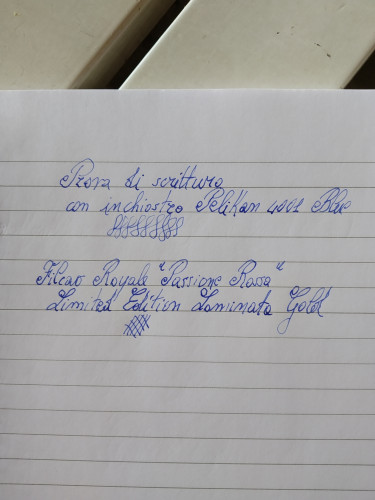 Prova di scrittura
con inchiostro Pelikan 4001 Blue
Filcao Royale "Passione Rossa"
Limited Edition Laminata Gold